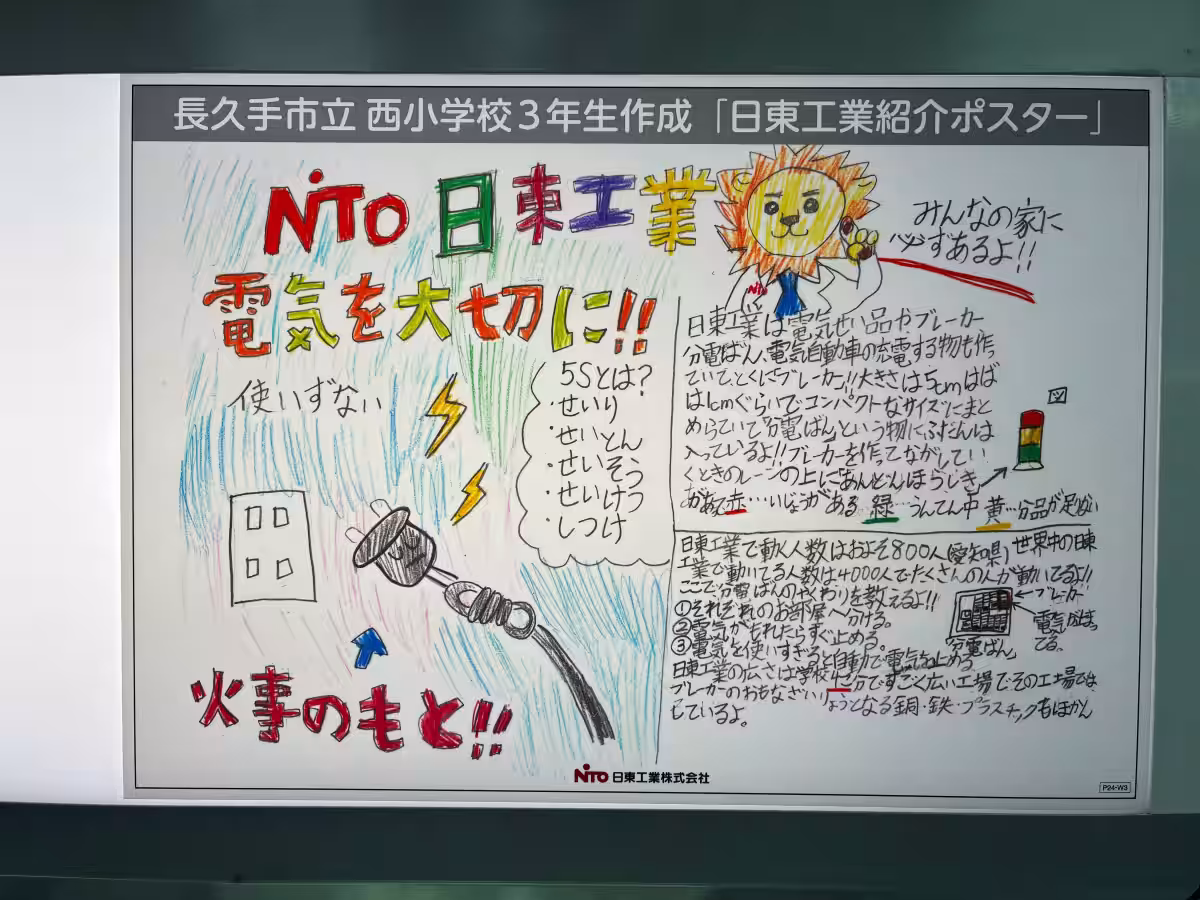 長久手市立 西小学校3年生作成「日東工業紹介ポスター」
NITO 日東工業
電気を大切に!!
使いずない
5Sとは?
・せいり
・せいとん
・せいそう
・せいけつ
・しつけ
火事のもと!!
みんなの家に
必ずあるよ!!
NITO
日東工業は電気せい品やブレーカー
分電ばん、電気自動車の充電する物も作っ
ていて、とくにブレーカー!!大きさは5cmはば
は1cmぐらいでコンパクトなサイズにまと
められていて「分電ばん」という物にふだんは
入っているよ!!ブレーカーを作ってながしてい
くときのレーンの上に「あんどんほうしき」
があって赤…いじょうがある 緑…うんてん中 黄…分品が足りない
図
日東工業で働く人数はおよそ800人(愛知県)世界中の日東
工業で動いてる人数は4000人でたくさんの人が動いてるよ!!
ここで分電ばんのやくわりを教えるよ!!
①それぞれのお部屋へ分ける。
②電気がもれたらすぐ止める。
③電気を使いすぎると自動で電気を止める
ブレーカー
電気がはいっ
てる。
「分電ばん」
日東工業の広さは学校4こ分ですごく広い工場でその工場では
ブレーカーのおもなざいりょうとなる銅・鉄・プラスチックもほかん
しているよ。
NITO 日東工業株式会社
P24-W3